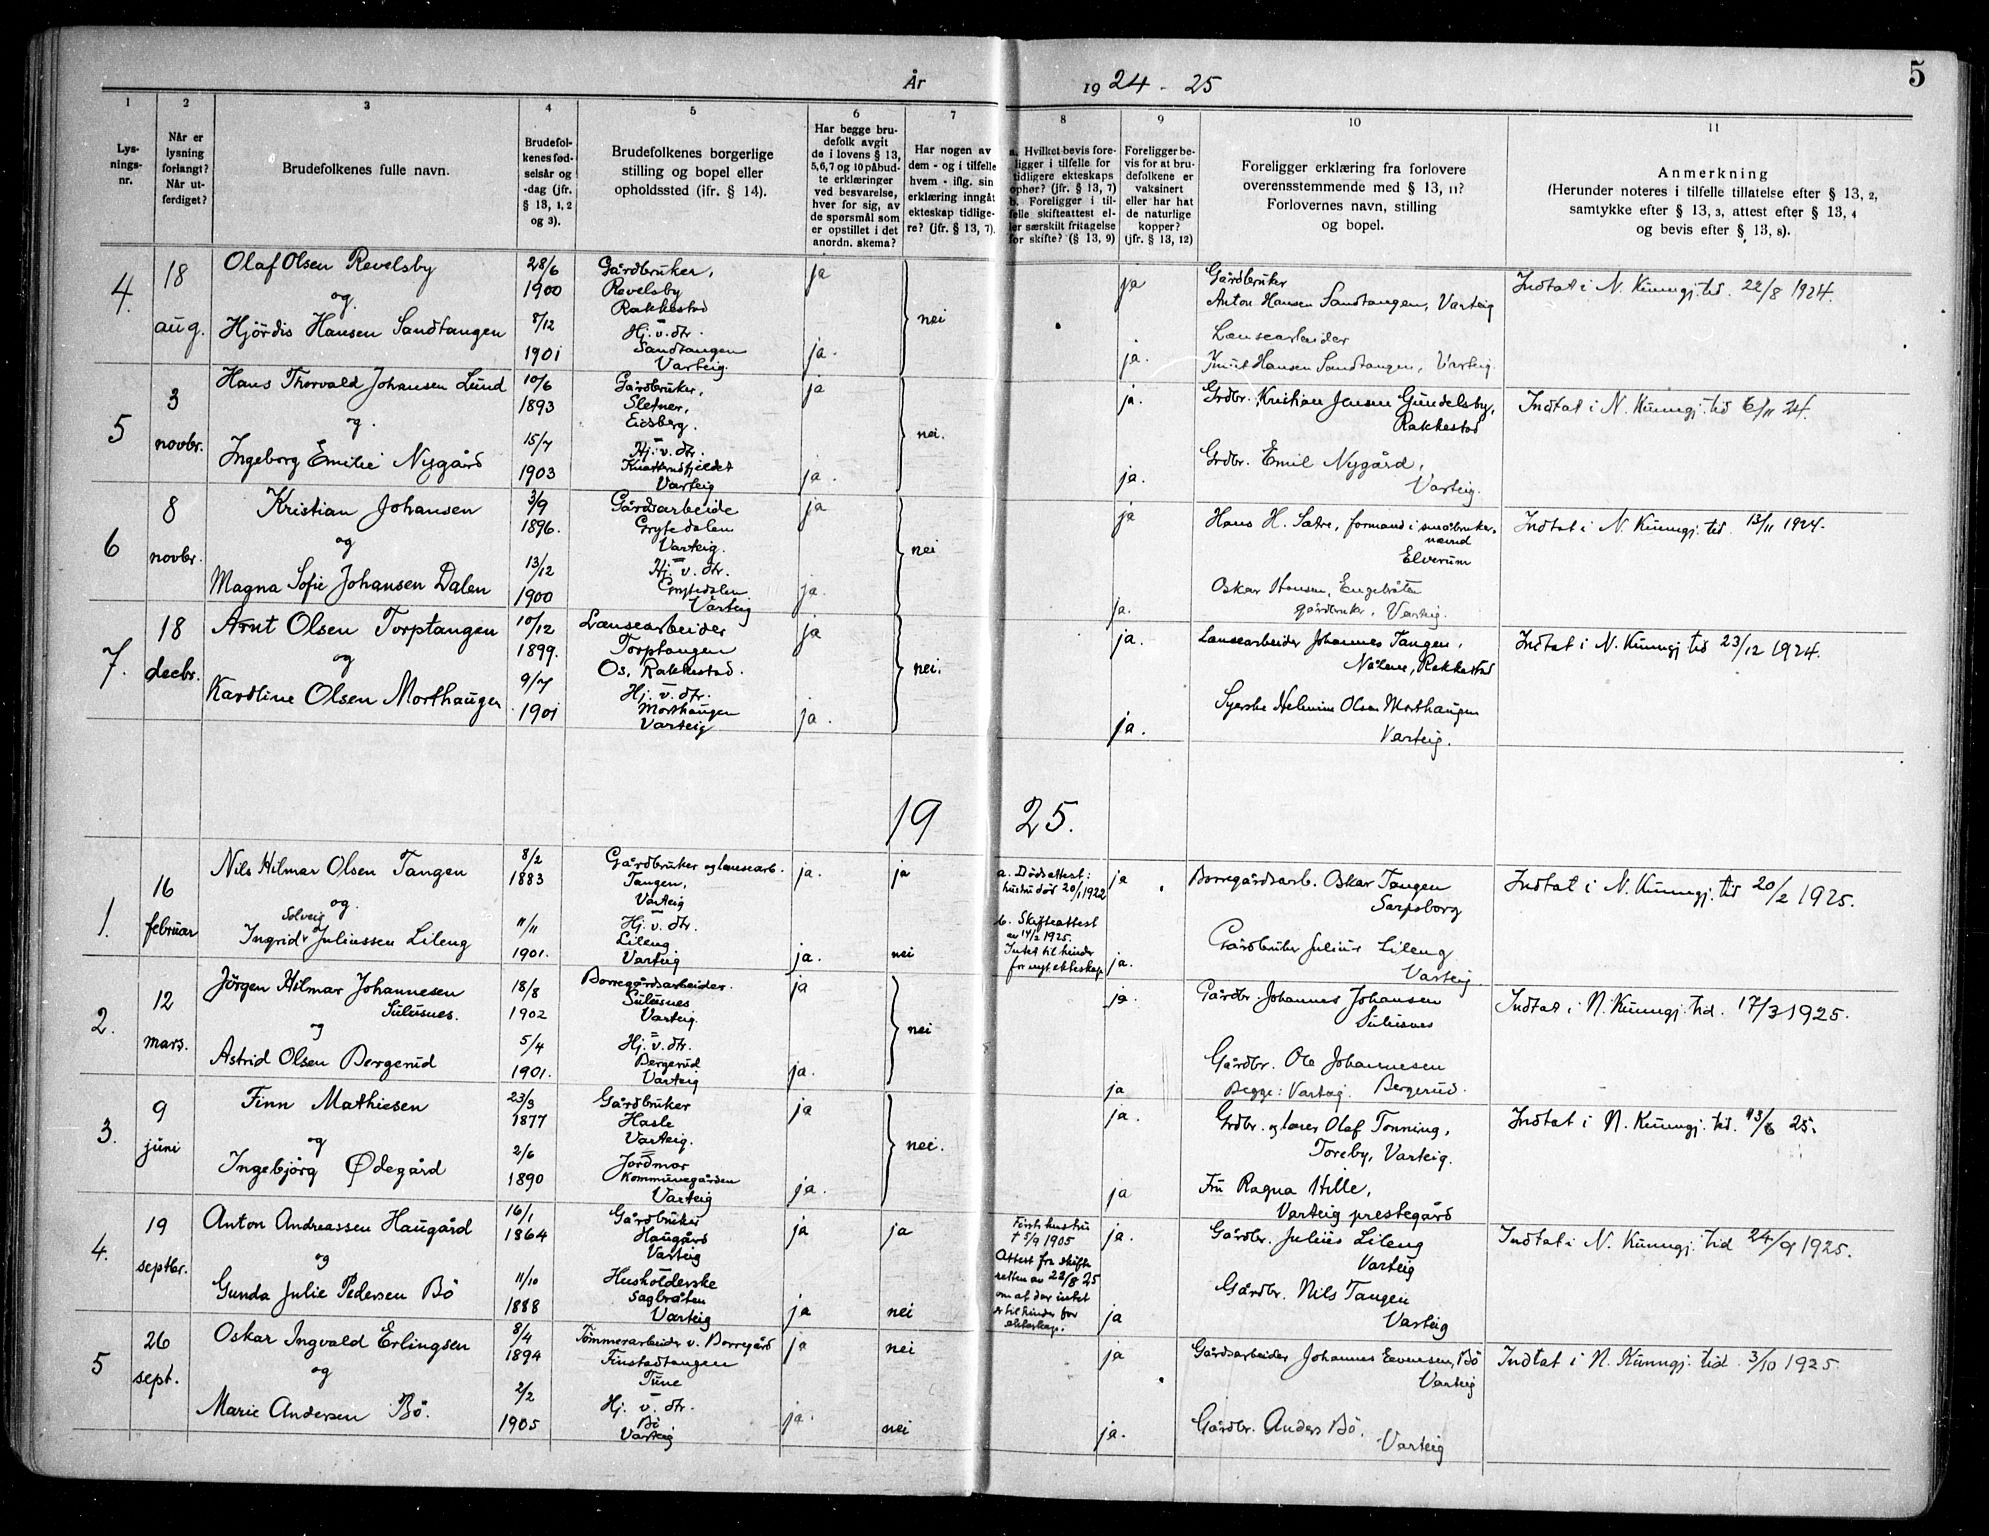 År 1924 - 25
5
1 2 3 4 5 6 7 8 9 10 11
Lysningsnr.
Når er lysning forlangt? Når utferdiget?
Brudefolkenes fulle navn.
Brudefolkenes fødselsår og -dag (jfr. § 13, 1, 2 og 3).
Brudefolkenes borgerlige stilling og bopel eller opholdssted (jfr. § 14).
Har begge brudefolk avgit de i lovens § 13, 5, 6, 7 og 10 påbudte erklæringer ved besvarelse, hver for sig, av de spørsmål som er opstillet i det anordn. skema?
Har nogen av dem - og i tilfelle hvem - iflg. sin erklæring inngåt ekteskap tidligere? (jfr. § 13, 7).
a. Hvilket bevis foreligger i tilfelle for tidligere ekteskaps ophør? (jfr. § 13, 7) b. Foreligger i tilfelle skifteattest eller særskilt fritagelse for skifte? (§ 13, 9)
Foreligger bevis for at brudefolkene er vaksinert eller har hat de naturlige kopper? (jfr. § 13, 12)
Foreligger erklæring fra forlovere overensstemmende med § 13, 11? Forlovernes navn, stilling og bopel.
Anmerkning (Herunder noteres i tilfelle tillatelse efter § 13, 2, samtykke efter § 13, 3, attest efter § 13, 4 og bevis efter § 13, 8).
4. 18 aug.
Olaf Olsen Revelsby
og
Hjördis Hansen Sandtangen
28/6 1900
8/12 1901
Gårdbruker, Revelsby Rakkestad
Hj. v. dtr. Sandtangen Varteig.
ja
ja.
nei
ja
ja.
Gårdbruker
Anton Hansen Sandtangen, Varteig
Lensearbeider
Knut Hansen Sandtangen, Varteig.
Indtat i N. Kunngj. tid. 22/8 1924.
5 3 novbr.
Hans Thorvald Johansen Lund
og.
Ingeborg Emilie Nygård
10/6 1893
15/7 1903
Gårdbruker, Sletner, Eidsberg.
Hj. v. dtr. Varteig
ja
ja.
nei.
ja.
ja.
Grdbr. Kristian Jensen Gundelsby,
Rakkestad
Grdbr. Emil Nygård,
Varteig.
Indtat i N. Kunngj. tid 6/11 24.
6 8 novbr.
Kristian Johansen
og
Magna Sofie Johansen Dalen
3/9 1896.
13/12 1900
Gårdsarbeide Grytedalen Varteig.
Hj. v. dtr. Grytedalen Varteig
ja
ja.
nei
ja
ja.
Hans H. Sætre, formand i småbruker-
nævnd
Elverum
Oskar Hansen, Engebråten
gårdbruker, Varteig.
Indtat i N. Kunngj. tid. 13/11 1924.
7. 18 decbr.
Arnt Olsen Torptangen
og
Karoline Olsen Morthaugen
10/12 1899.
9/7 1901
Lensearbeider Torptangen Os, Rakkestad.
Hj. v. dtr. Morthaugen Varteig
ja
ja.
nei.
ja.
ja.
Lensearbeider Johannes Tangen,
Rakkestad
Syerske Helmine Olsen Morthaugen
Varteig.
Indtat i N. Kunngj tid 23/12 1924.
19 25.
1. 16 februar
Nils Hilmar Olsen Tangen
og.
Ingrid Solveig Juliussen Lileng
8/2 1883
11/11 1901.
Gårdbruker og lensearb. Tangen, Varteig
Hj. v. dtr. Lileng Varteig
ja.
ja.
ja
nei
a. Dødsattest: hustru död 20/1 1922
b. Skifteattest av 14/2 1925. Intet til hinder for nyt ekteskap
ja
ja.
Borregårdsarb. Oskar Tangen
Sarpsborg
Gårdbruker Julius Lileng
Varteig.
Indtat i N. Kunngj. tid 20/2 1925.
2. 12 mars.
Jörgen Hilmar Johannesen
Sulusnes.
og
Astrid Olsen Bergerud
18/8 1902
5/4 1901.
Borregårdsarbeider. Sulusnes Varteig.
Hj. v. dtr. Bergerud Varteig
ja
ja.
nei
ja.
ja
Gårdbr. Johannes Johansen
Sulusnes
Gårdbr. Ole Johannesen
Begge: Varteig. Bergerud.
Indtat i N. Kunngj. tid. 17/3 1925.
3. 9 juni
Finn Mathiesen
og
Ingebjörg Ødegård
23/3 1877
2/6 1890
Gårdbruker Hasle Varteig.
Jordmor Kommunegården Varteig
ja
ja.
nei.
ja.
ja
Grdbr. og lærer Olaf Tonning,
Toreby, Varteig.
Fru Ragna Hille,
Varteig prestegård
Indtat i N. Kunngj. tid. 13/6 25.
4. 19 septbr.
Anton Andreassen Haugård
og
Gunda Julie Pedersen Bö
16/1 1864
11/10 1888
Gårdbruker Haugård Varteig
Husholderske Sagbråten Varteig
ja
ja
ja
nei
Förste hustru † 5/9 1905
Attest fra skifteretten av 22/8 25 om at der intet er til hinder for ekteskap.
ja.
ja
Gårdbr. Julius Lileng
Varteig
Gårdbr. Nils Tangen
Varteig
Indtat i N. Kunngj. tid 24/9 1925.
5 26 sept.
Oskar Ingvald Erlingsen
og
Marie Andersen Bö.
8/4 1894
2/2 1905
Tømmerarbeider v. Borregård Finstadtangen Tune
Hj. v. dtr. Bö Varteig
ja
ja.
nei
nei
ja
ja.
Gårdsarbeider Johannes Evensen, Bö
Varteig
Gårdbr. Anders Bö.
Varteig
Indtat i N. Kunngj. tid. 3/10 1925.